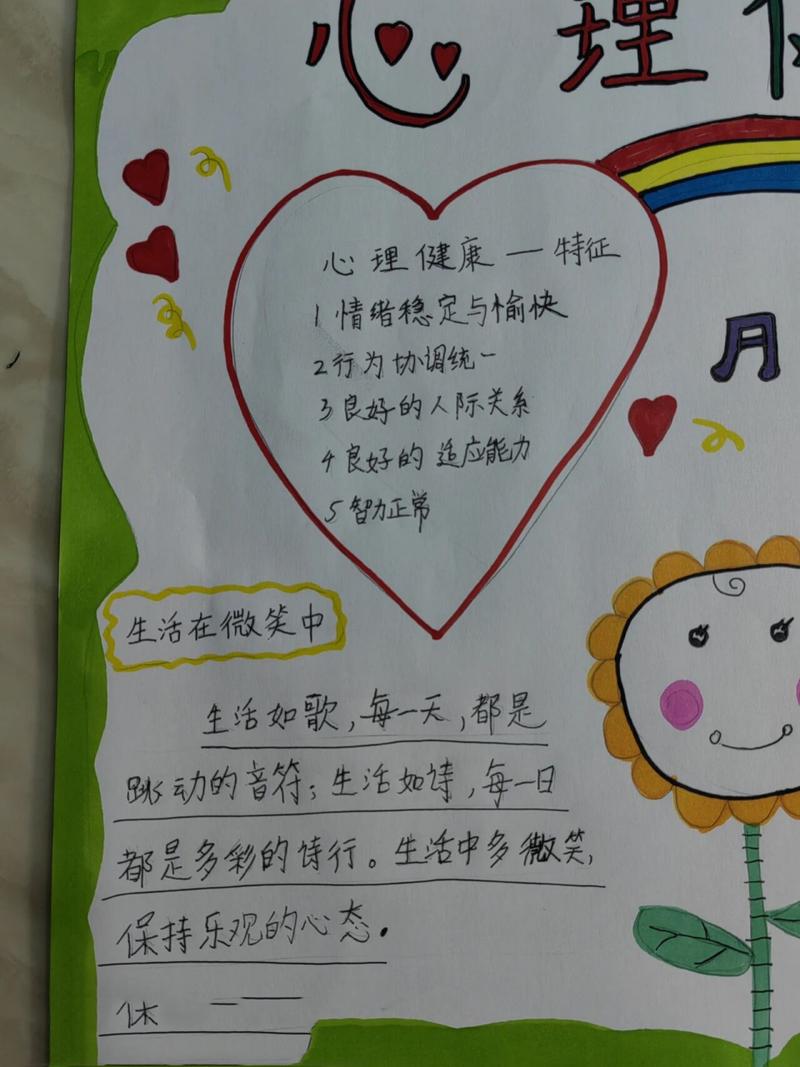 心理
心理健康一特征
1情绪稳定与愉快
2行为协调统一
3良好的人际关系
4良好的适应能力
5智力正常
月
生活在微笑中
生活如歌,每一天,都是
跳动的音符;生活如诗,每一日
都是多彩的诗行。生活中多微笑,
保持乐观的心态.
休